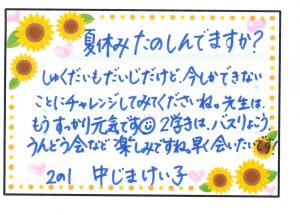 夏休みたのしんでますか?
しゅくだいもだいじだけど、今しかできない
ことにチャレンジしてみてくださいね。先生は、
もうすっかり元気です 2学きは、バスりょこう
うんどう会など楽しみですね。早く会いたいです!
2の1 中じまけい子